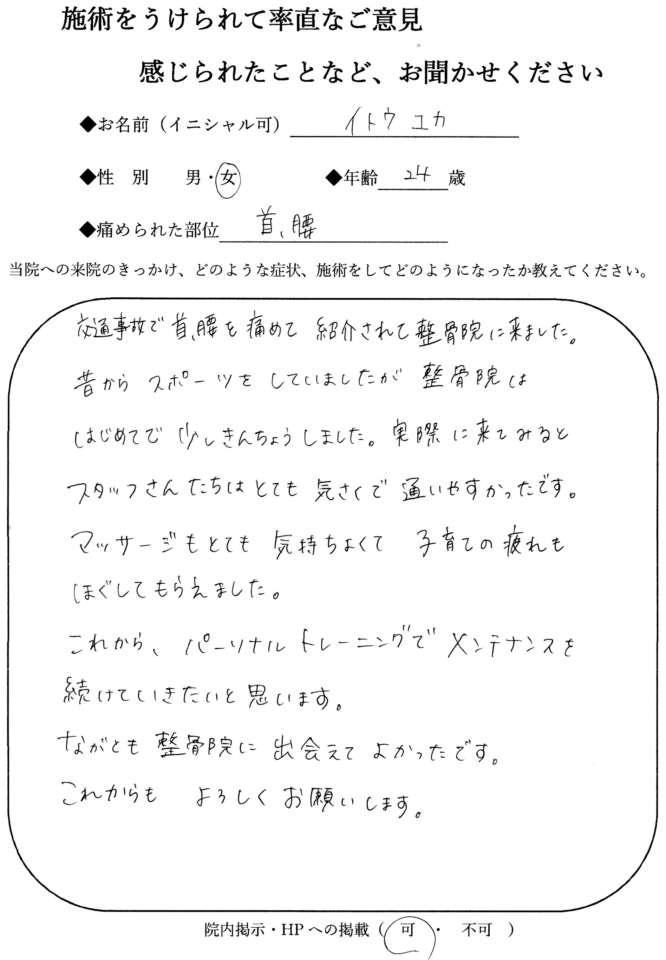 施術をうけられて率直なご意見
感じられたことなど、お聞かせください
◆お名前（イニシャル可） イトウ ユカ
◆性 別 男・女 ◆年齢 24 歳
◆痛められた部位 首、腰
当院への来院のきっかけ、どのような症状、施術をしてどのようになったか教えてください。
交通事故で首、腰を痛めて 紹介されて整骨院に来ました。
昔から スポーツを していましたが 整骨院は
はじめてで 少しきんちょうしました。実際に来てみると
スタッフさんたちはとても 気さくで 通いやすかったです。
マッサージもとても 気持ちよくて 子育ての疲れも
ほぐしてもらえました。
これから、パーソナルトレーニングで メンテナンスを
続けていきたいと思います。
ながとも整骨院に 出会えて よかったです。
これからも よろしくお願いします。
院内掲示・HPへの掲載（ 可 ・ 不可 ）